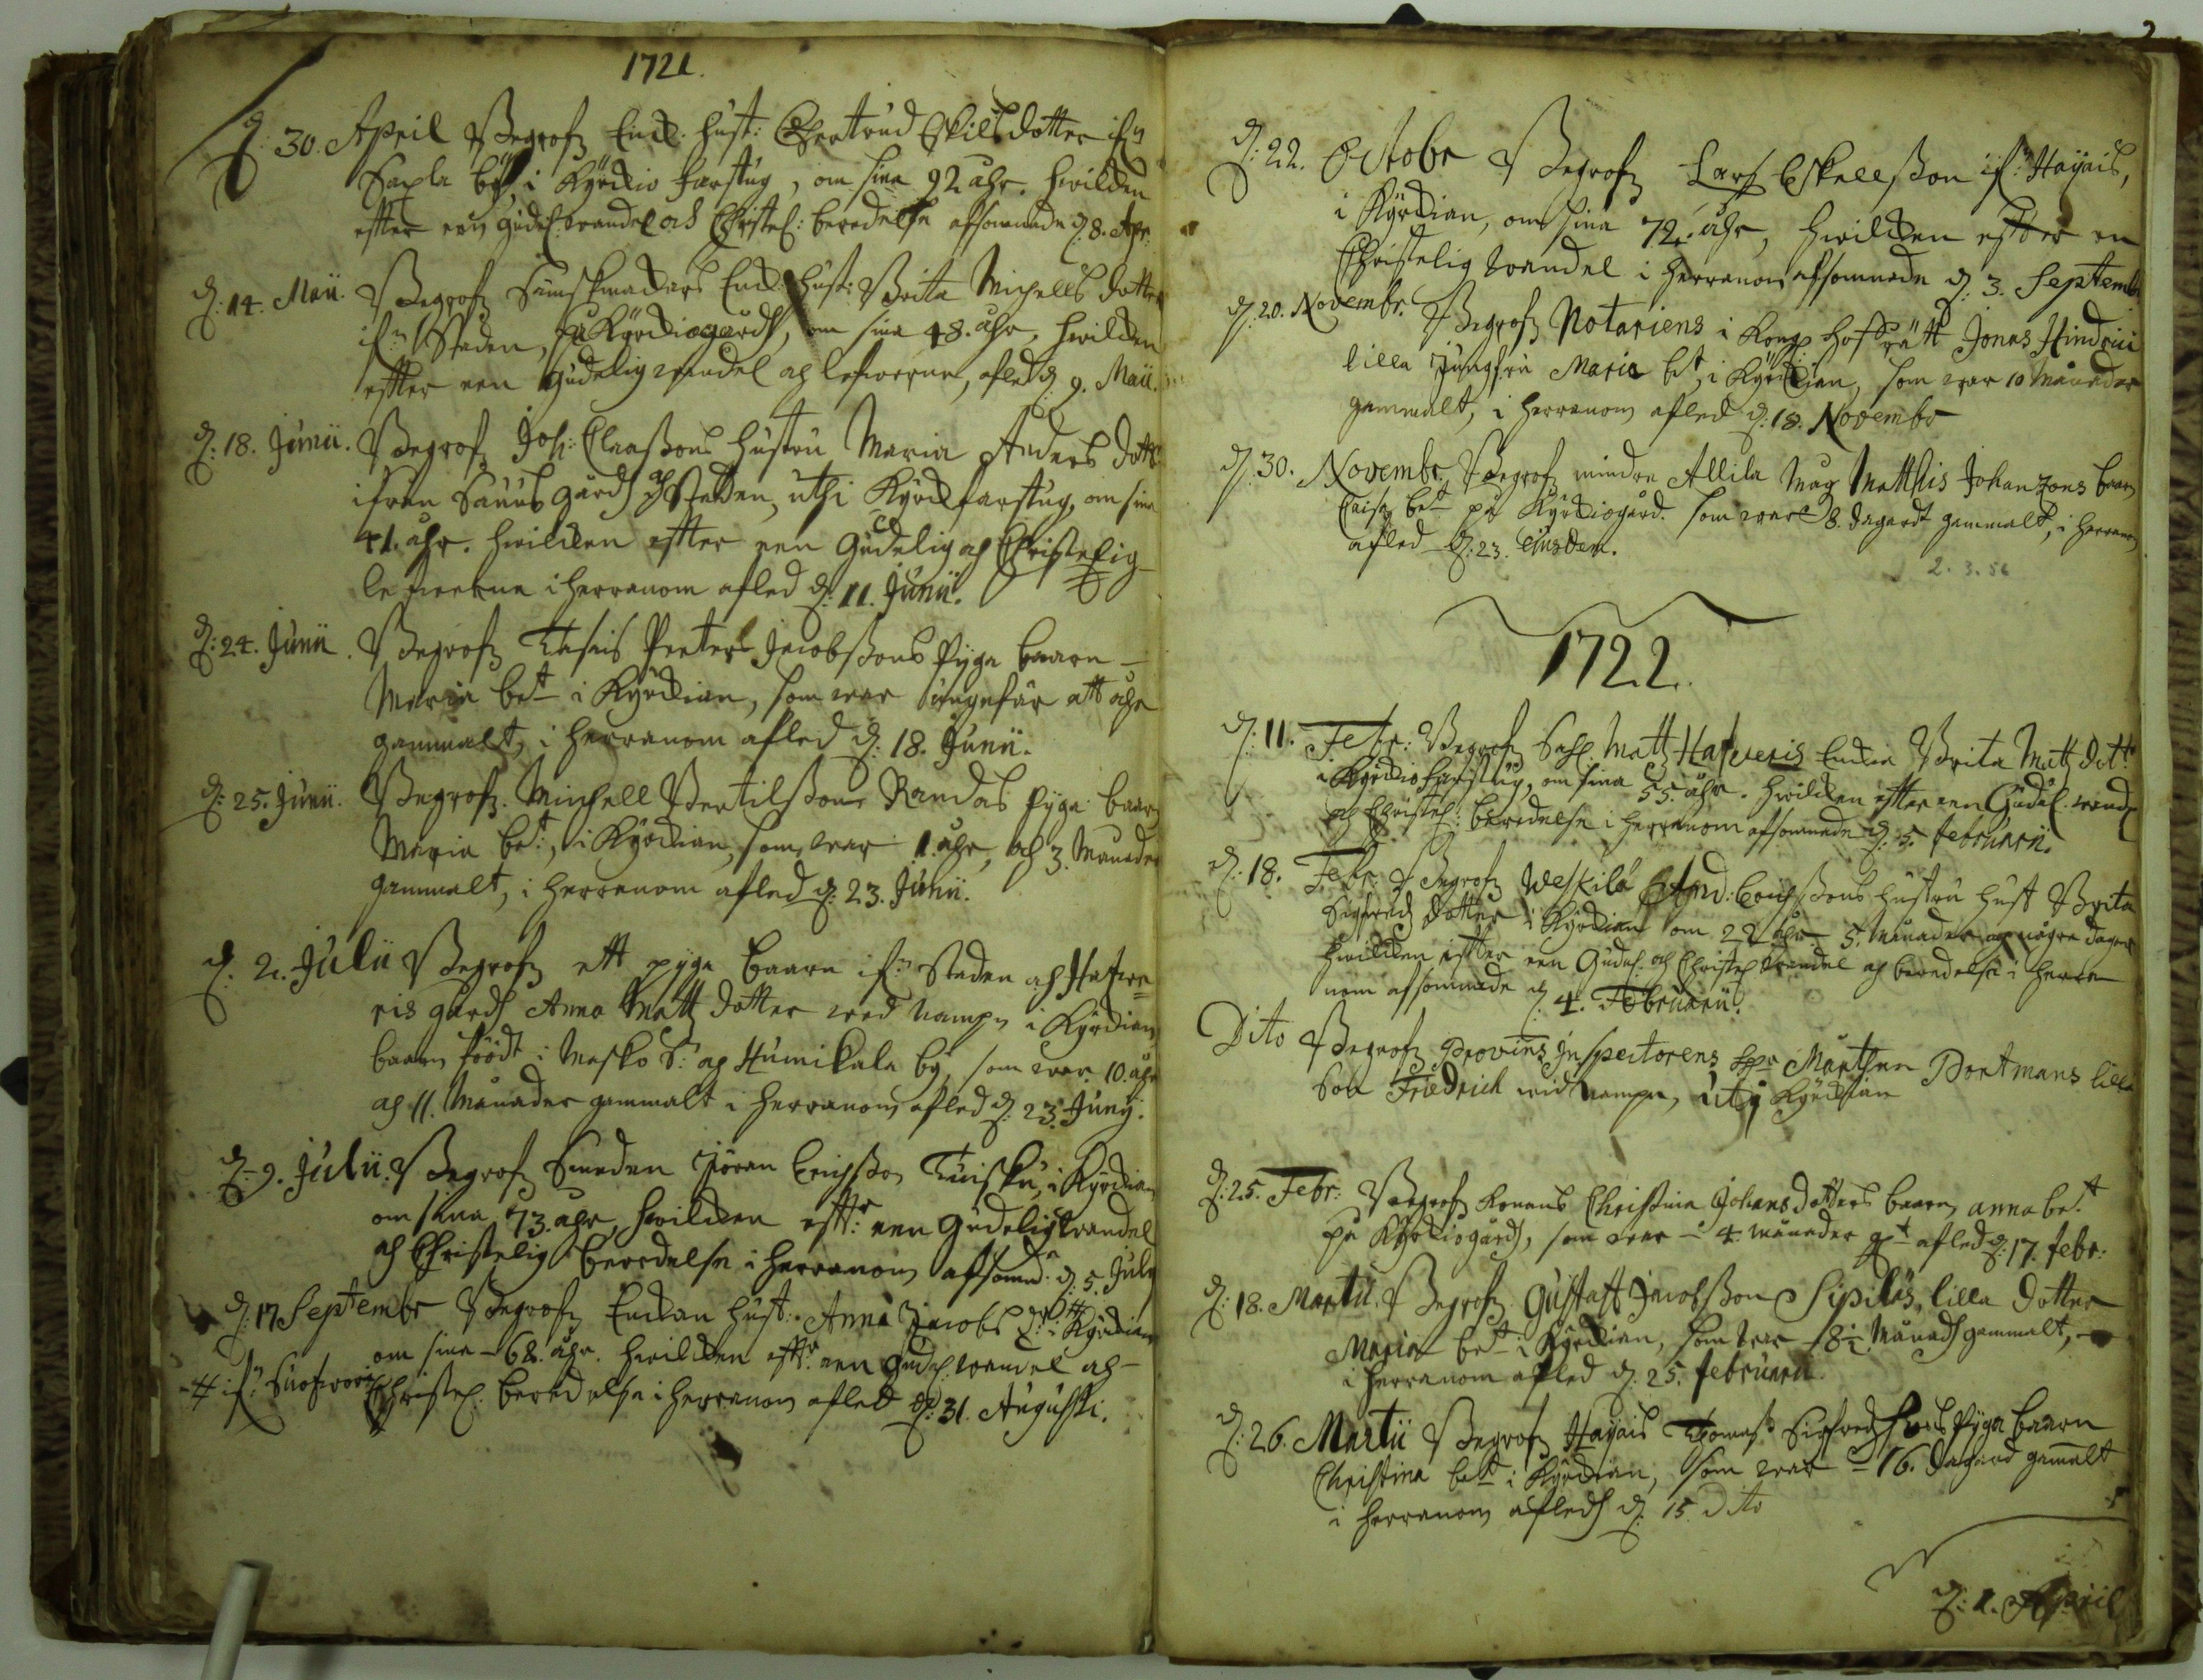 1721.
d: 30. April Begrofz Enck. hust: Gertrud Eskilsdotter ifrn
Sexla by i Kyrckio farstug, om sina 92 åhr. hwilcken
effter een gudel: wandel och Christel: beredelse afsomnade d: 8. Apr:
d: 14. Maii. Begrofz Sämskmackars Enck: hust: Brita Michells dotter
ifrn Staden, på Kyrckiogårdh, om sina 48. åhr, hwilcken
effter een gudelig wandel och lefwerne, afled d 9. Maii.
d: 18. Junii. Begrofz Joh: Claassons hustru Maria Anders dotter
ifrån Sauus gårdh och Staden, uthi Kyrckfarstug, om sina
41. åhr. hwilcken effter een Gudelig och Christelig
lefwerne i herranom afled d: 11. Junii.
d: 24. Junii. Begrofz Peeter Jacobssons Pyga baarn
Maria bet i Kyrckian, som war ungefär ått åhr
gammalt, i herranom afled d: 18. Junii.
d: 25. Junii. Begrofz. Michell Bertilssons Randas pyga baarn
Maria bet, i Kyrckian, som war 1. åhr, och 3. Månader
gammalt, i herranom afled d: 23. Junii.
d. 2. Julii Begrofz ett pyga baarn ifrn Staden och Hafwe=
ris gårdh Anna Matz dotter wed nampn i Kyrckian
baarn föödt i Masko S: och Humikala by, som war 10. åhr
och 11. Månader gammalt i herranom afled d: 23. Junij.
d: 9. Julii. Begrofz Smeden Jöran Erichsson Tuisku, i Kyrckian
om sina 73. åhr, hwilcken efft:r een Gudelig wandel
och Christelig beredelse i herranom afsomn: d: 5. July
d: 17 Septembr Begrofz Enckan hust: Anna Jacobs dott: i Kyrckian
om sina 68. åhr. hwilcken efft:r een gudel: wandel och
# ifrn Christel: beredelse i herranom afled d: 31. Augusti.
d: 22. Octobr Begrofz Lars Eskellsson ifrn Hayais,
i Kyrckian, om sina 72. åhr, hwilcken effter en
Christelig wandel i herranom afsomnade d: 3. Septemb
d: 20. Novembr. Begrofz Notariens i Kongl Hofrätt Jonas Hindrici
lilla Jungfru Maria bt, i Kyrckian, som war 10 Månader
gammalt, i herranom afled d: 18. Novembr
d: 30. Novembr. Begrofz mindre Allila Mag Matthis Johanzons baarn
Caisa bet på Kyrckiogård. som war 8. dagardt gammalt, i herranom
afled d: 23. Eiusdem.
2. 3. 56
1722.
d: 11. Febr: Begrofz Sahl. Matz Hafveris Enckia Brita Matz dott:
i Kyrckiofarstug, om sina 55. åhr. hwilcken effter een Gudel. wandel
och Christel: beredelse i herranom afsomnade d. 5. februarii.
d: 18. Febr: Begrofz Weskilä And: Erichssons hustru hust Brita
Sigfredz dotter i Kyrckian om 22 åhr 5. månader och några dagar
hwilcken effter een Gudel. och Christel wandel och beredelse i herra
nom afsomnade d. 4. Februarii.
Dito Begrofz Provins Inspectorens hr Mårthen Portmans lilla
Son Friedrich wid nampn, uti Kyrckian
d: 25. Febr: Begrofz konans Christina Johansdotters baarn anna bet
på Kyrkiogårdh, som war 4. månader gt afled d: 17. febr:
d: 18. Martii. Begrofz Gustaff Jacobsson Sipiläs, lilla Dotter
Maria bet i Kyrckian, som war 8½ månadh gammalt,
i herranom afled d. 25. februarii
d: 26. Martii Begrofz Hayais Thomas Sigfredssons Pyga baarn
Christina bet i Kyrckian, som war 16. dagard gamalt
i herranom afledh d. 15. Dito
d: 1. April